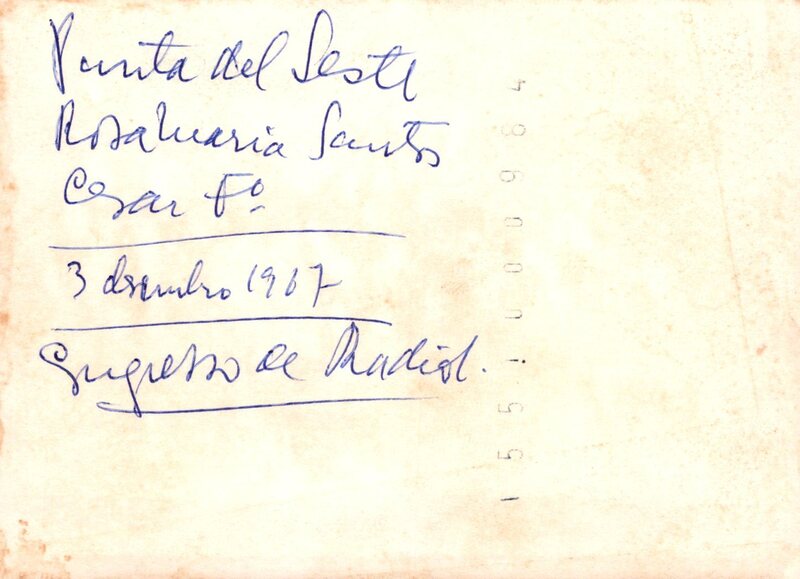 Punta del Leste
Rosa Maria Santos
Cesar Fº
3 dezembro 1967
Congresso de Radiol.
155.1000964